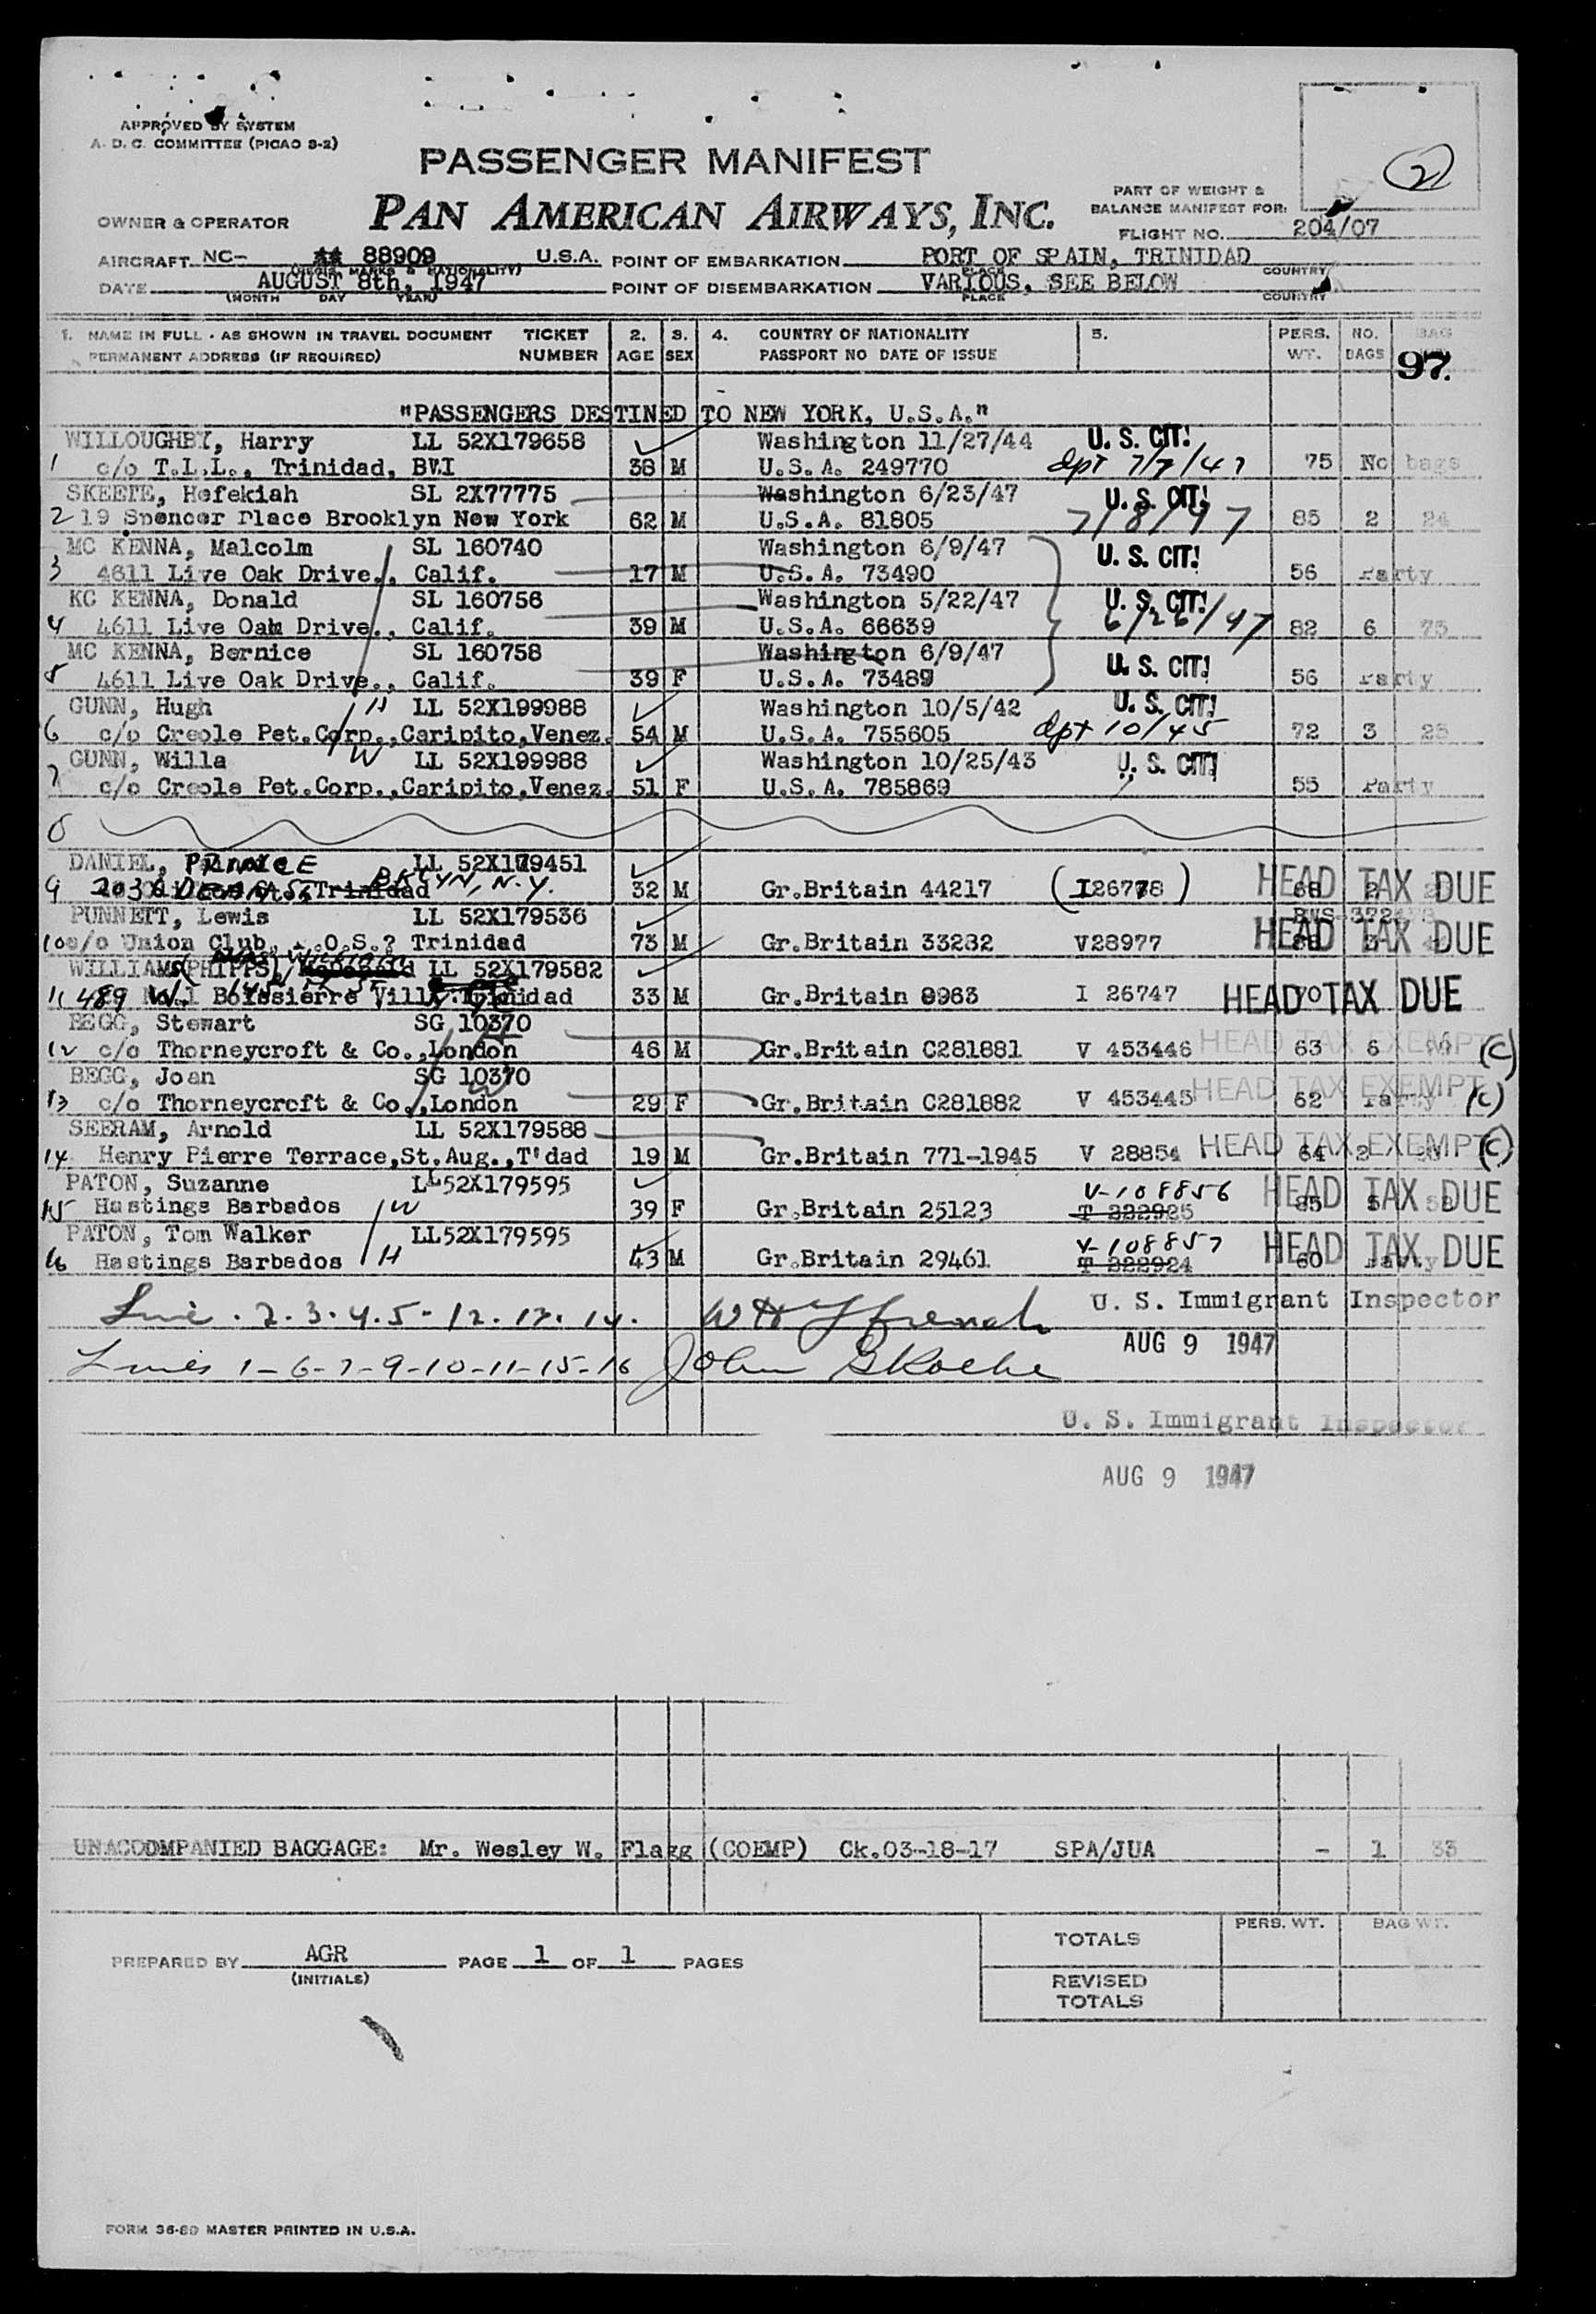 APPROVED BY SYSTEM
A. D. C. COMMITTEE (PICAO S-2)
PASSENGER MANIFEST
PAN AMERICAN AIRWAYS, INC.
2
PART OF WEIGHT &
BALANCE MANIFEST FOR:
OWNER & OPERATOR
FLIGHT NO. 204/07
AIRCRAFT NC- 88909 U.S.A. POINT OF EMBARKATION PORT OF SPAIN, TRINIDAD
(REGIS. MARKS & NATIONALITY) PLACE COUNTRY
DATE AUGUST 8th, 1947 POINT OF DISEMBARKATION VARIOUS, SEE BELOW
(MONTH DAY YEAR) PLACE COUNTRY
1. NAME IN FULL - AS SHOWN IN TRAVEL DOCUMENT TICKET 2. 3. 4. COUNTRY OF NATIONALITY 5. PERS. NO. BAG
PERMANENT ADDRESS (IF REQUIRED) NUMBER AGE SEX PASSPORT NO DATE OF ISSUE WT. BAGS
97.
"PASSENGERS DESTINED TO NEW YORK, U.S.A."
WILLOUGHBY, Harry LL 52X179658 Washington 11/27/44 U. S. CIT!
1 c/o T.L.L., Trinidad, BWI 38 M U.S.A. 249770 dpt 7/7/47 75 No bags
SKEETE, Hefekiah SL 2X77775 Washington 6/23/47 U. S. CIT!
2 19 Spencer Place Brooklyn New York 62 M U.S.A. 81805 7/8/47 85 2 24
MC KENNA, Malcolm SL 160740 Washington 6/9/47 U. S. CIT!
3 4611 Live Oak Drive., Calif. 17 M U.S.A. 73490 56 Party
KC KENNA, Donald SL 160756 Washington 5/22/47 U. S. CIT!
4 4611 Live Oak Drive., Calif. 39 M U.S.A. 66639 6/26/47 82 6 73
MC KENNA, Bernice SL 160758 Washington 6/9/47
5 4611 Live Oak Drive., Calif. 39 F U.S.A. 73489 U. S. CIT! 56 Party
GUNN, Hugh H LL 52X199988 Washington 10/5/42 U. S. CIT!
6 c/o Creole Pet.Corp.,Caripito,Venez. 54 M U.S.A. 755605 dpt 10/45 72 3 25
GUNN, Willa W LL 52X199988 Washington 10/25/43 U. S. CIT!
7 c/o Creole Pet.Corp.,Caripito,Venez. 51 F U.S.A. 785869 55 Party
8
DANIEL, PRINCE LL 52X179451
9 203 DEAN ST. Trinidad BKLYN, N.Y. 32 M Gr.Britain 44217 (I26778) 68 2 HEAD TAX DUE
PUNNETT, Lewis LL 52X179536
10 c/o Union Club, .O.S.? Trinidad 73 M Gr.Britain 33232 V28977 HEAD TAX DUE
WILLIAMS(PHIPPS), LL 52X179582
11 489 W. Boissierre Vill Trinidad 33 M Gr.Britain 8963 I 26747 70 HEAD TAX DUE
BEGG, Stewart SG 10370
12 c/o Thorneycroft & Co.,London 46 M Gr.Britain C281881 V 453446 HEAD TAX EXEMPT (C) 63 6
BEGG, Joan SG 10370
13 c/o Thorneycroft & Co.,London 29 F Gr.Britain C281882 V 453445 HEAD TAX EXEMPT (C) 62 Party
SEERAM, Arnold LL 52X179588
14 Henry Pierre Terrace,St.Aug.,T'dad 19 M Gr.Britain 771-1945 V 28854 HEAD TAX EXEMPT (C) 64 2
PATON, Suzanne LL52X179595 V-108856
15 Hastings Barbados W 39 F Gr.Britain 25123 T 222925 HEAD TAX DUE 85 5
PATON, Tom Walker LL52X179595 V-108857
16 Hastings Barbados H 43 M Gr.Britain 29461 T 222924 HEAD TAX DUE 60 Party
Line . 2. 3. 4. 5 - 12. 13. 14. U. S. Immigrant Inspector
AUG 9 1947
Lines 1-6-7-9-10-11-15-16 John
U. S. Immigrant Inspector
AUG 9 1947
UNACCOMPANIED BAGGAGE: Mr. Wesley W. Flagg (COEMP) Ck.03-18-17 SPA/JUA - 1 33
PERS. WT. BAG WT.
TOTALS
PREPARED BY AGR PAGE 1 OF 1 PAGES
(INITIALS)
REVISED
TOTALS
FORM 36-89 MASTER PRINTED IN U.S.A.